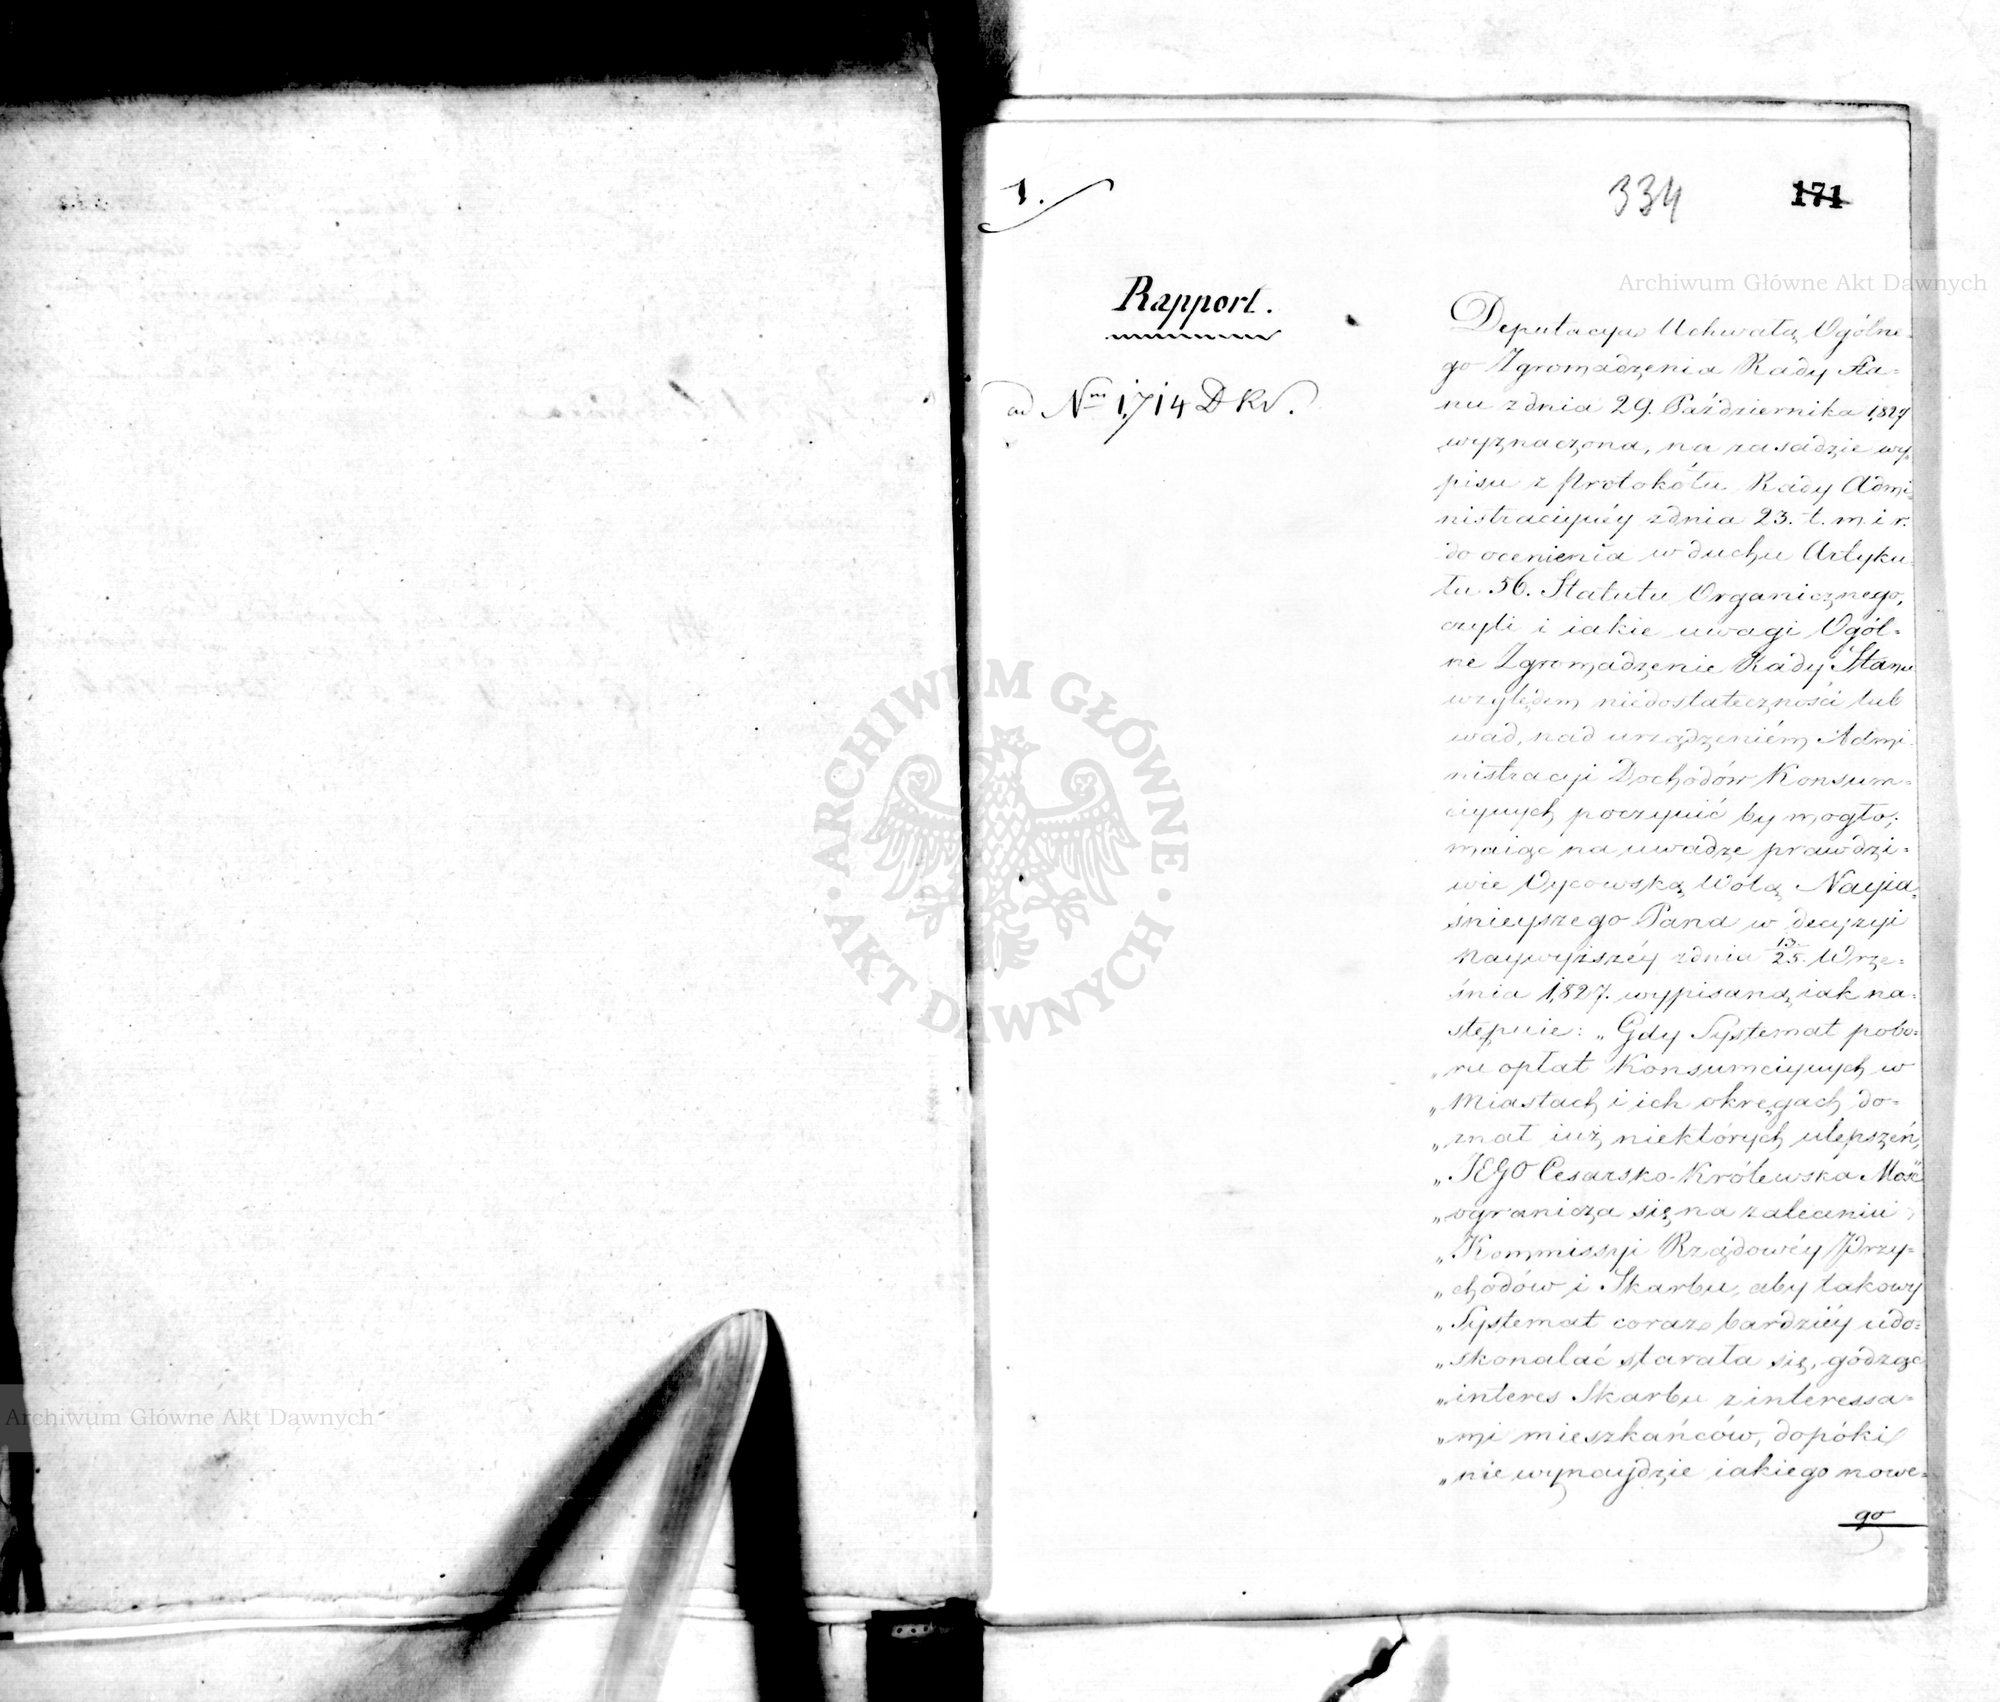 1.
334
171
Rapport.
ad Nm 1714 DRS.
Deputacya Uchwałą Ogólne-
go Zgromadzenia Rady Sta-
nu z dnia 29. Października 1827
wyznaczona, na zasadzie wy-
pisu z Protokółu Rady Admi-
nistracyinéy zdnia 23. t. m. i r.
do ocenienia w duchu Artyku-
łu 56. Statutu Organicznego,
czyli i iakie uwagi Ogól-
ne Zgromadzenie Rady Stanu
względem niedostateczności lub
wad, nad urządzeniém Admi-
nistracyi Dochodów Konsum-
cyinych poczynić by mogło;
maiąc na uwadze prawdzi-
wie Oycowską Wolą Nayia-
śnieyszego Pana w decyzyi
Naywyższéy zdnia 13/25. Wrze-
śnia 1827. wypisaną, iak na-
stępuie: „Gdy Systemat pobo-
„ru opłat Konsumcyinych w
„Miastach i ich okręgach do-
„znał iuż niektórych ulepszeń,
„JEGO Cesarsko-Królewska Mość
„ogranicza się na zaleceniu
„Kommissyi Rządowéy Przy-
„chodów i Skarbu, aby takowy
„Systemat coraz bardziéy udo-
„skonalać starała się, godząc
„interes Skarbu z interessa-
„mi mieszkańców, dopóki
„nie wynaydzie iakiego nowe-
go
Archiwum Główne Akt Dawnych
Archiwum Główne Akt Dawnych
ARCHIWUM GŁÓWNE · AKT DAWNYCH ·